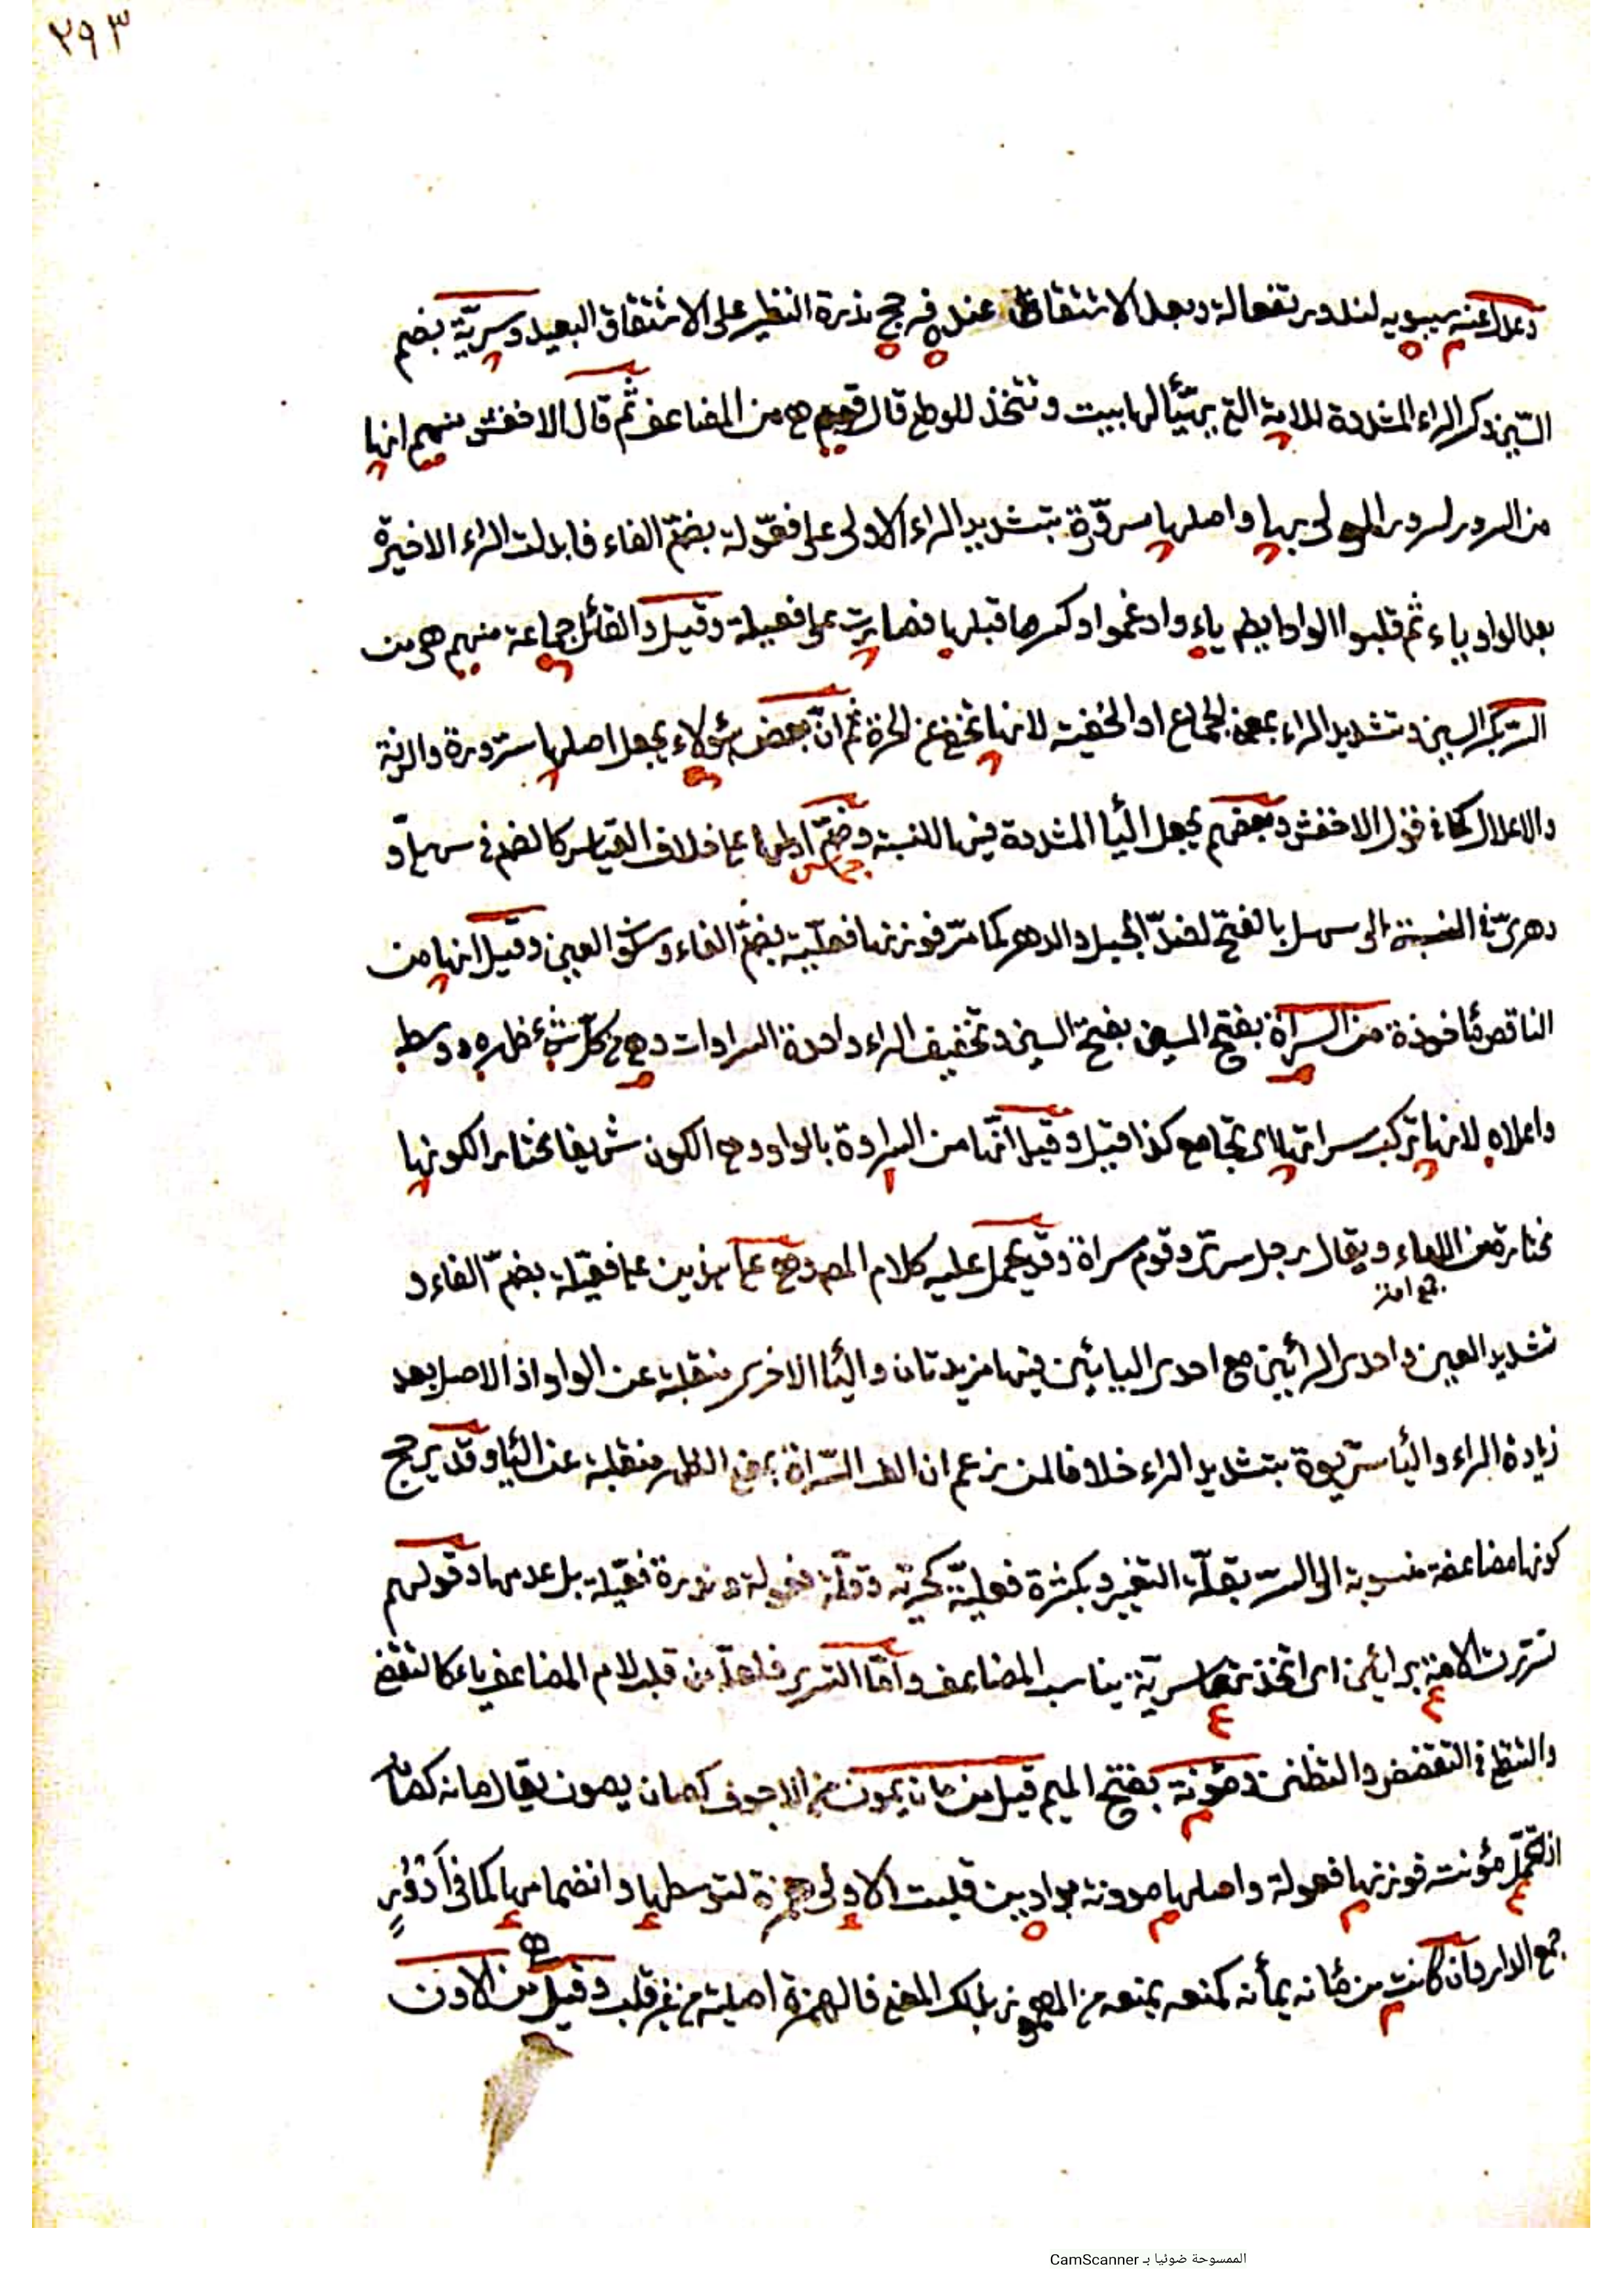 ٢٩٣
وعدل عنه سيبويه لندور تفعالة وبعد الاشتقاق عنده فرجح ندرة النظير على الاشتقاق البعيد وسريّة بضم
السّين وكسر الراء المشددة للامة التى يهيّأ لها بيت وتتخذ للوطى قال قوم هى من المضاعف ثم قال الاخفش منهم انها
من السرور لسرور المولى بها واصلها سرّورة بتشديد الراء الاولى على فعّولة بضمّ الفاء فابدلت الراء الاخيرة
بعد الواو ياء ثم قلبوا الواو ايضا ياء وادغموا وكسر ما قبلها فصارت على فعيلة وقيل والقائل جماعة منهم هى من
السّر بكسر السين وتشديد الراء بمعنى الجماع او الخفية لانها تخفى عن الحرة ثم انّ بعض هؤلاء يجعل اصلها سرّورة والزنة
والاعلال كما فى قول الاخفش وبعضهم يجعل اليا المشددة فيها للنسبة وضمّ اولها على خلاف القياس كالضم فى سهلىّ و
دهرىّ فى النسبة الى سهل بالفتح لضدّ الجبل والدهر كما مرّ فوزنها فعليّة بضمّ الفاء وسكون العين وقيل انها من
الناقص مأخوذة من السراة بفتح السين بفتح السين وتخفيف الراء واحدة السراوات وهى من كلّ شىء ظهره ووسطه
واعلاه لانها تركب سراتها اى تجامع كذا قيل وقيل انّها من السراوة بالواو وهى الكون شريفا مختارا لكونها
مختارة من الاماء ويقال رجل سرىّ وقوم سراة وقد يحمل عليه كلام المص وهى على هذين على فعّيلة بضمّ الفاء و
جمع امة
تشديد العين واحدى الرائين مع احدى اليائين فيها مزيدتان واليا الاخرى منقلبة عن الواو اذ الاصل بعد
زيادة الراء واليا سرّيوة بتشديد الراء خلافا لمن زعم ان الف السّراة بمعنى الظهر منقلبة عن اليا وقد يرجح
كونها مضاعفة منسوبة الى السر بقلّة التغيير وبكثرة فعليّة كحريّة وقلّة فعولة وندرة فعّيلة بل عدمها وقولهم
تسررت الامة برائين اى اتخذتها سرية يناسب المضاعف وامّا التسرى فلعلّه من قلب لام المضاعف ياء كالتقضى
والتظنى فى التقضض والتظنن ومؤنة بفتح الميم قيل من مان يمون من الاجوف كصان يصون يقال مانه كصانه
اذا تحمّل مؤنته فوزنها فعولة واصلها موونة بواوين قلبت الاولى همزة لتوسطها وانضمامها كما فى ادؤرٍ
جمع الدار وان كانت من مأنه يمأنه كمنعه يمنعه من المهموز بذلك المعنى فالهمزة اصلية من غير قلب وقيل من الاون
الممسوحة ضوئيا بـ CamScanner